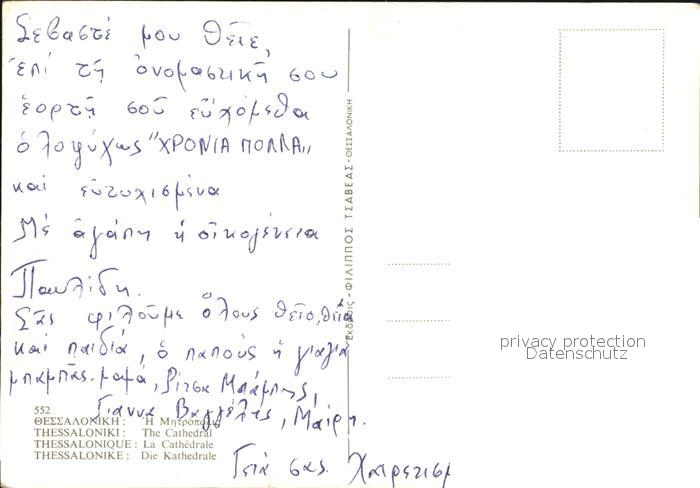 Σεβαστέ μου Θεῖε,
ἐπί τῇ ὀνομαστικῇ σου
ἑορτῇ σοῦ εὐχόμεθα
ὁλοψύχως "ΧΡΟΝΙΑ ΠΟΛΛΑ"
καί εὐτυχισμένα
Μέ ἀγάπη ἡ οἰκογένεια
Παυλίδη.
Σᾶς φιλοῦμε ὅλους θεῖο, θεία
καί παιδιά, ὁ παποὺς ἡ γιαγιά
μπαμπᾶς-μαμά, Ρίτσα Μπάμπης,
Γιαννα Βαγγέλης, Μαίρη.
Γειά σας Χαιρετισμ
Ἔκδοσις-ΦΙΛΙΠΠΟΣ ΤΣΑΒΕΑΣ-ΘΕΣΣΑΛΟΝΙΚΗ
privacy protection
Datenschutz
552
ΘΕΣΣΑΛΟΝΙΚΗ: Ἡ Μητρόπολις
THESSALONIKI: The Cathedral
THESSALONIQUE: La Cathédrale
THESSALONIKE: Die Kathedrale